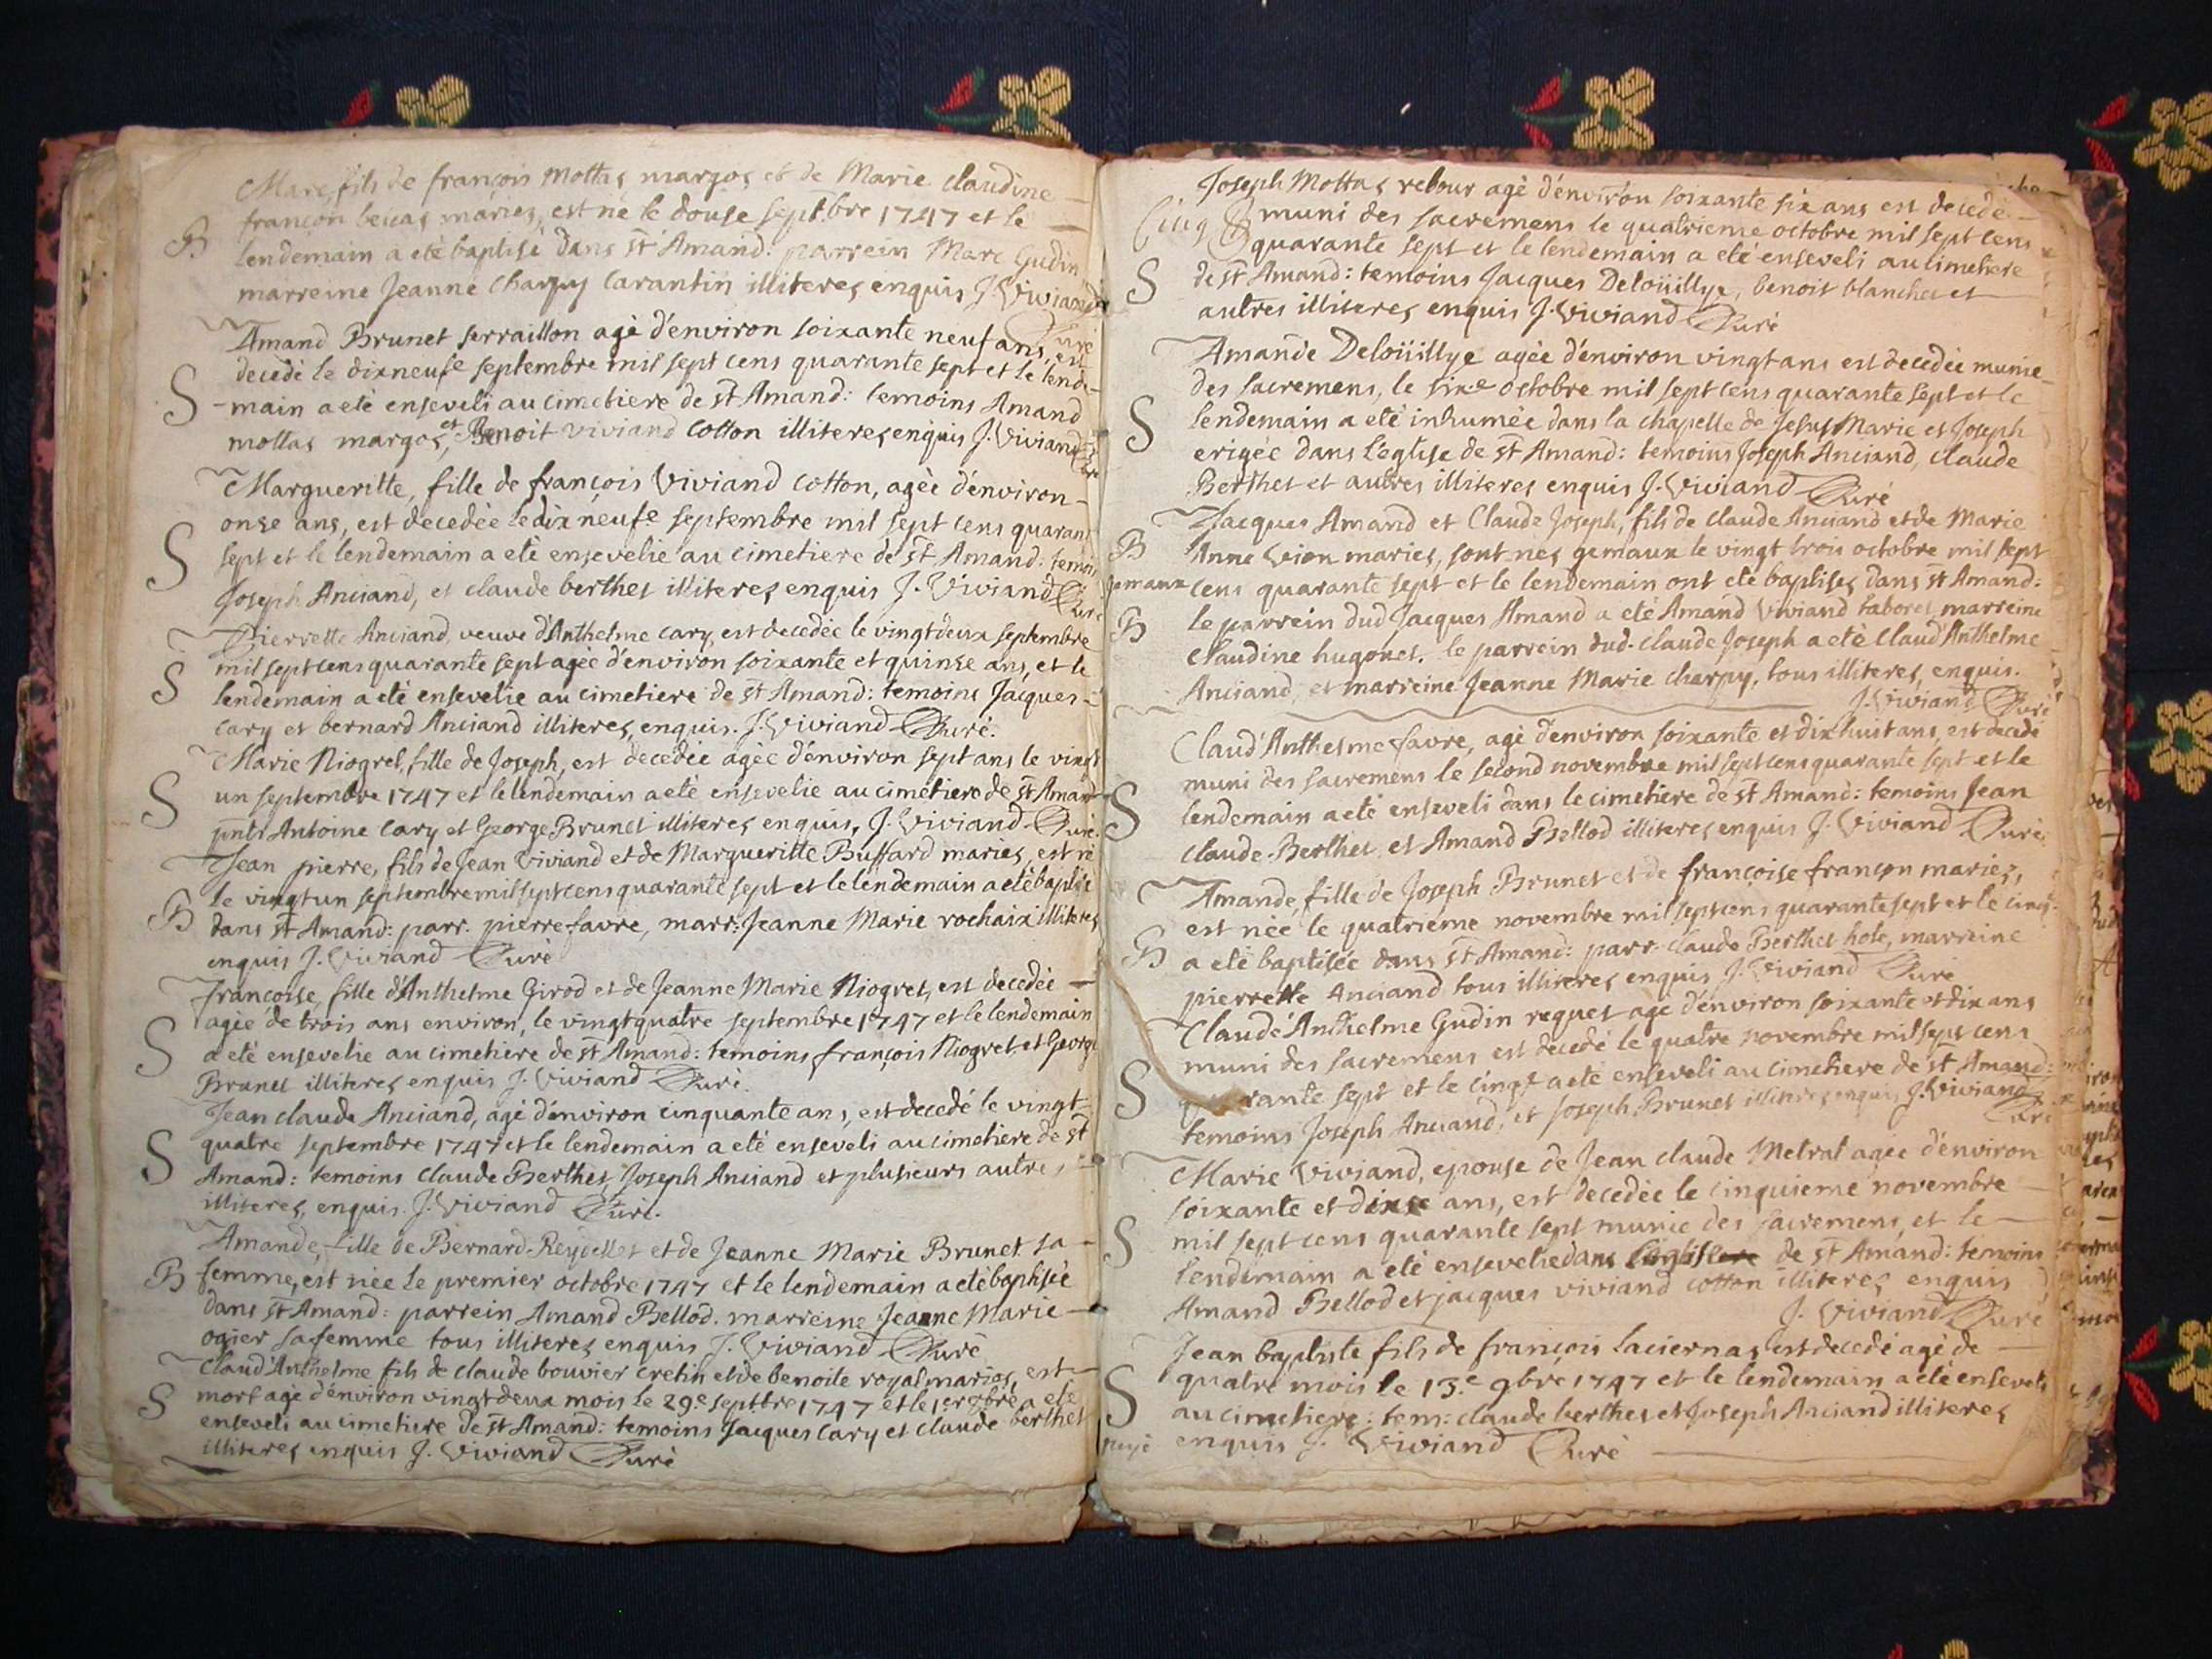 Marc, fils de françois Mottas margos et de Marie claudine
françon beccas mariez, est né le douse septbre 1747 et le
B lendemain a eté baptisé dans st Amand: parrein Marc Gudin
marreine Jeanne Charpy Carantin illiterez enquis J. Viviand
Curé
Amand Brunet serraillon agé d'environ soixante neuf ans, est
decedé le dixneufe septembre mil sept cens quarante sept et le lende-
S -main a eté enseveli au cimetiere de st Amand: temoins Amand
mottas margos, et Benoit viviand cotton illiterez enquis J. Viviand
Curé
Margueritte, fille de françois Viviand cotton, agée d'environ
onse ans, est decedée le dix neufe septembre mil sept cens quarante
S sept et le lendemain a eté ensevelie au cimetiere de st Amand: temoins
Joseph Anciand, et claude berthet illiterez enquis J. Viviand Curé
Pierrette Anciand, veuve d'Anthelme Cary, est decedée le vingt deux septembre
S mil sept cens quarante sept agée d'environ soixante et quinse ans, et le
lendemain a eté ensevelie au cimetiere de st Amand: temoins Jacques
Cary et bernard Anciand illiterez, enquis. J. Viviand Curé.
Marie Niogret, fille de Joseph, est decedée agée d'environ sept ans le vingt
S un septembre 1747 et le lendemain a eté ensevelie au cimetiere de st Amand
pnts Antoine Cary et George Brunet illiterez enquis, J. Viviand Curé.
Jean pierre, fils de Jean Viviand et de Margueritte Buffard mariez, est né
B le vingt un septembre mil sept cens quarante sept et le lendemain a eté baptisé
dans st Amand: parr. pierre favre, marr: Jeanne Marie rochaix illiterez
enquis J. Viviand Curé
Françoise, fille d'Anthelme Girod et de Jeanne Marie Niogret, est decedée
agée de trois ans environ, le vingt quatre septembre 1747 et le lendemain
S a eté ensevelie au cimetiere de st Amand: temoins françois Niogret et George
Brunet illiterez enquis J. Viviand Curé.
Jean claude Anciand, agé d'environ cinquante ans, est decedé le vingt
S quatre septembre 1747 et le lendemain a eté enseveli au cimetiere de st
Amand: temoins claude Berthet, Joseph Anciand et plusieurs autres
illiterez, enquis. J. Viviand Curé.
Amande, fille de Bernard Reydellet et de Jeanne Marie Brunet sa
B femme, est née le premier octobre 1747 et le lendemain a eté baptisée
dans st Amand: parrein Amand Bellod. marreine Jeanne Marie
ogier sa femme tous illiterez enquis J. Viviand Curé
Claud'Anthelme fils de claude bouvier cretin et de benoite royal mariez, est
S mort agé d'environ vingt deux mois le 29.e septtre 1747 et le 1er 8bre a eté
enseveli au cimetiere de st Amand: temoins Jacques Cary et claude berthet
illiterez enquis J. Viviand Curé
Joseph Mottas retour agé d'environ soixante six ans est decedé
muni des sacremens le quatrieme octobre mil sept cens
quarante sept et le lendemain a eté enseveli au cimetiere
S de st Amand: temoins Jacques Deloüillye, benoit blanchet et
autres illiterez enquis J. Viviand Curé
Amande Deloüillye agée d'environ vingt ans est decedée munie
des sacremens, le sixe octobre mil sept cens quarante sept et le
S lendemain a eté inhumée dans la chapelle de Jesus Marie et Joseph
erigée dans l'église de st Amand: temoins Joseph Anciand, claude
Berthet et autres illiterez enquis J. Viviand Curé
Jacques Amand et Claude Joseph, fils de claude Anciand et de Marie
B Anne Vion mariez, sont nez gemaux le vingt trois octobre mil sept
gemaux cens quarante sept et le lendemain ont eté baptisez dans st Amand:
B le parrein dud Jacques Amand a eté Amand Viviand taboret, marreine
Claudine hugonet. le parrein dud. claude Joseph a eté Claud'Anthelme
Anciand, et marreine Jeanne Marie charpy, tous illiterez, enquis.
J. Viviand Curé
Claud'Anthelme favre, agé d'environ soixante et dix huit ans, est decedé
muni des sacremens le second novembre mil sept cens quarante sept et le
S lendemain a eté enseveli dans le cimetiere de st Amand: temoins Jean
claude Berthet, et Amand Bellod illiterez enquis J. Viviand Curé
Amande, fille de Joseph Brunet et de françoise françon mariez,
est née le quatrieme novembre mil sept cens quarante sept et le cinqe
B a eté baptisée dans st Amand: parr. claude Berthet hote, marreine
pierrette Anciand tous illiterez enquis J. Viviand Curé
Claude Anthelme Gudin requet agé d'environ soixante et dix ans
muni des sacremens est decedé le quatre novembre mil sept cens
S quarante sept et le cinqe a eté enseveli au cimetiere de st Amand:
temoins Joseph Anciand, et Joseph Brunet illiterez enquis J. Viviand
Curé
Marie Viviand, epouse de Jean claude Metrat agée d'environ
soixante et dixse ans, est decedée le cinquieme novembre
S mil sept cens quarante sept munie des sacremens, et le
lendemain a eté ensevelie dans l'eglise de st Amand: temoins
Amand Bellod et jacques viviand cotton illiterez enquis
J. Viviand Curé
Jean baptiste fils de françois laciernas est decedé agé de
quatre mois le 13.e 9bre 1747 et le lendemain a eté enseveli
S au cimetiere: tem: claude berthet et Joseph Anciand illiterez
enquis J. Viviand Curé